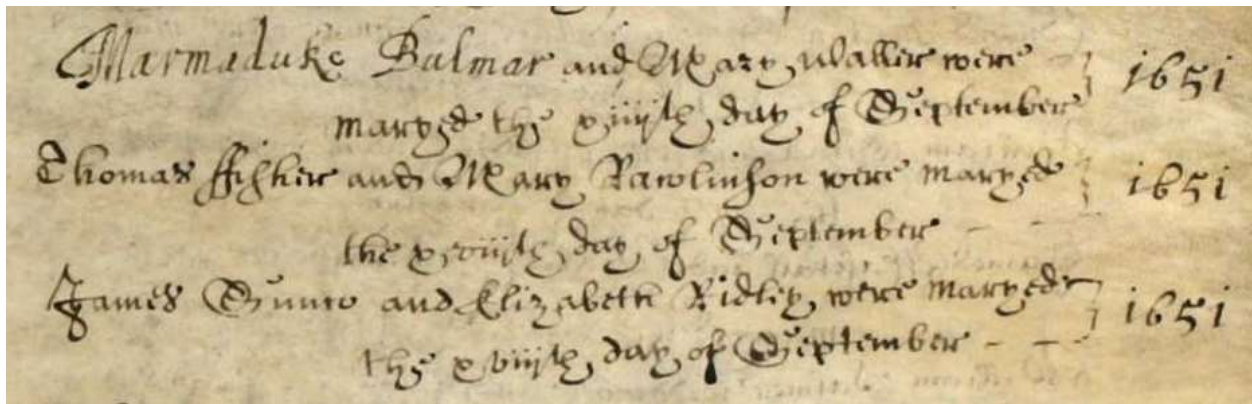 Marmaduke Bulmar and Mary Waller were 1651
maryed the xiiijth day of September
Thomas ffisher and Mary Rawlinson were maryed 1651
the xviijth day of September
James and Elizabeth Ridley were maryed 1651
the xviijth day of September